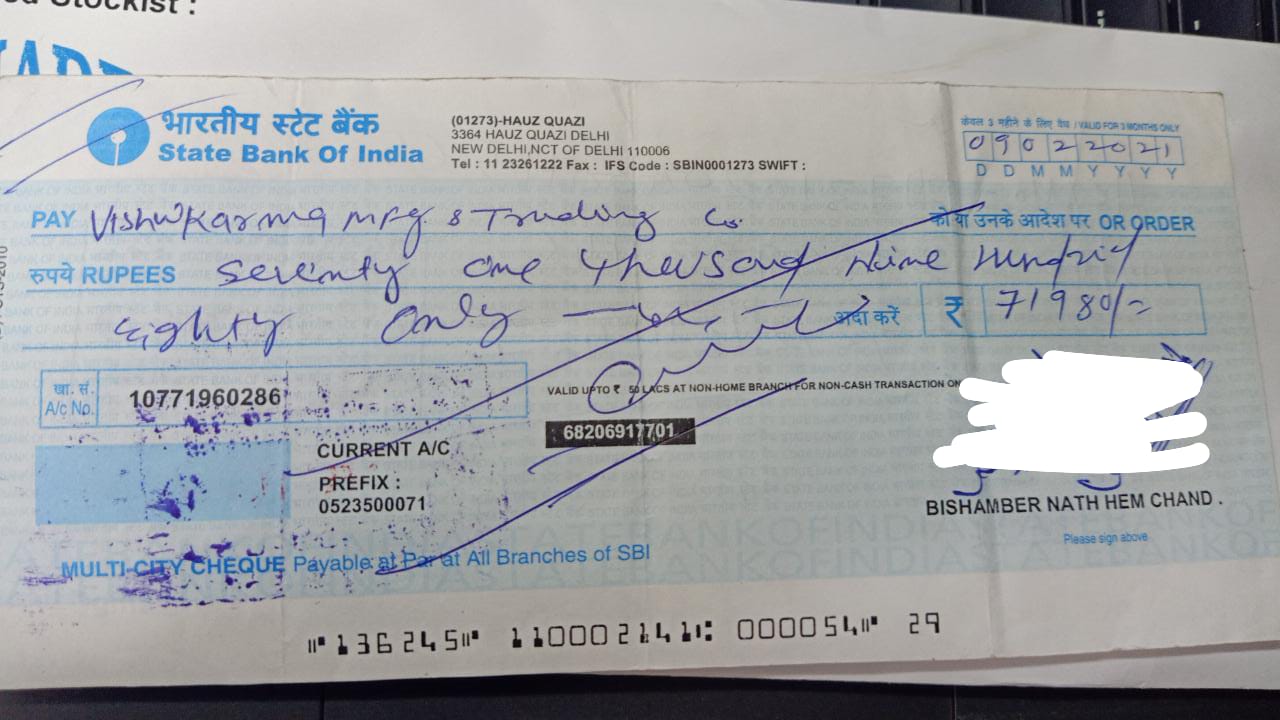 ed Stockist :
भारतीय स्टेट बैंक
State Bank Of India
(01273)-HAUZ QUAZI
3364 HAUZ QUAZI DELHI
NEW DELHI,NCT OF DELHI 110006
Tel : 11 23261222 Fax : IFS Code : SBIN0001273 SWIFT :
केवल 3 महीने के लिए वैध / VALID FOR 3 MONTHS ONLY
09022021
D D M M Y Y Y Y
PAY Vishwkarma Mfg & Trading Co. को या उनके आदेश पर OR ORDER
रुपये RUPEES Seventy one Thousand Nine Hundrid
Eighty Only अदा करें ₹ 71980/=
खा. सं.
A/c No. 10771960286
VALID UPTO ₹ 50 LACS AT NON-HOME BRANCH FOR NON-CASH TRANSACTION ON
68206917701
CURRENT A/C
PREFIX :
0523500071
BISHAMBER NATH HEM CHAND .
Please sign above
MULTI-CITY CHEQUE Payable at Par at All Branches of SBI
⑈136245⑈ 110002141⑆ 000054⑈ 29